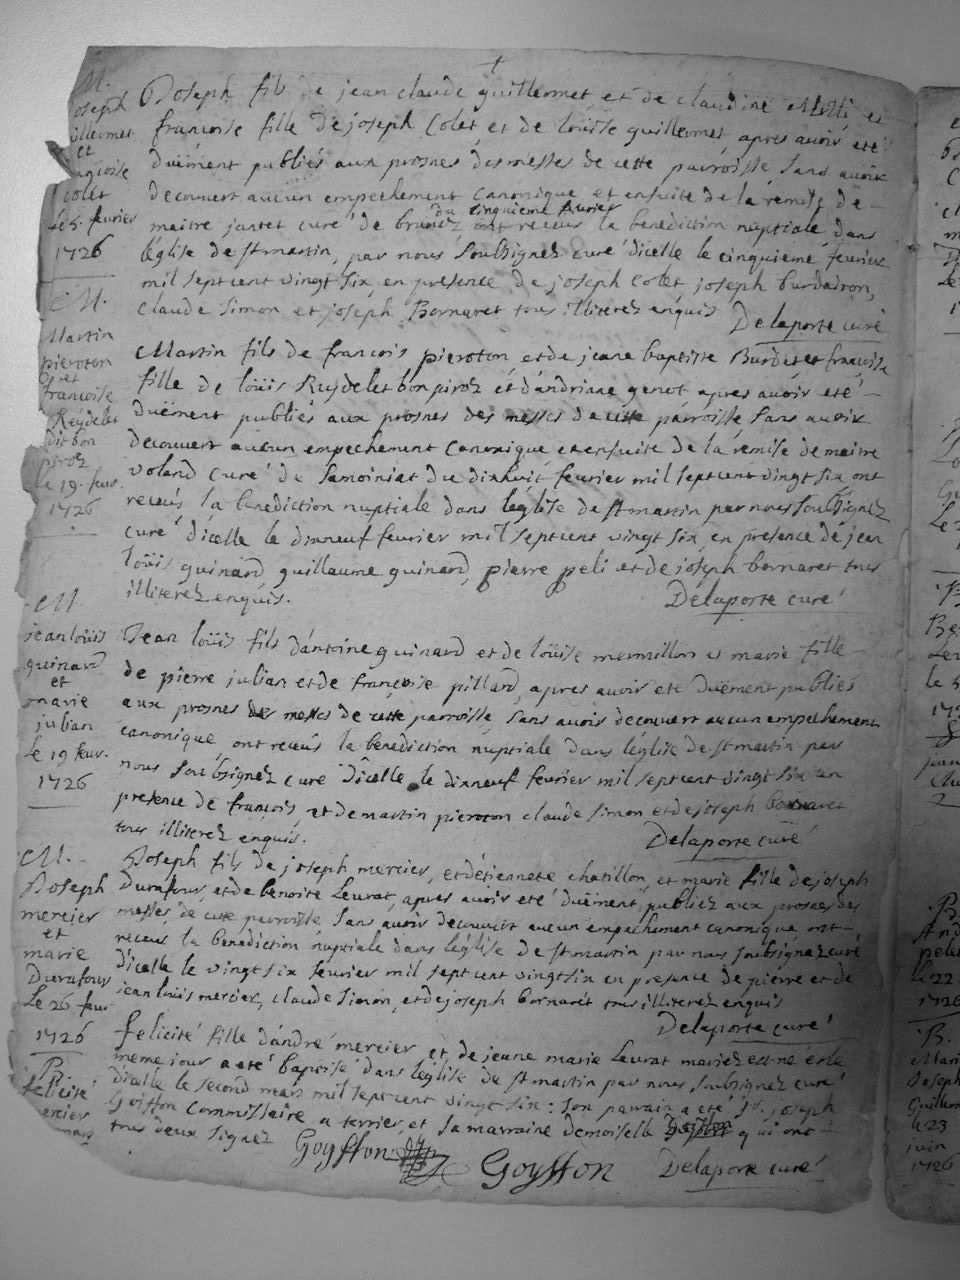 M.
Joseph
guillermet
et
françoise
colet
le 5. fevrier
1726
Joseph fils de jean claude guillermet et de claudine et
francoise fille de joseph Colet et de loüise guillermet apres avoir eté
duëment publiés aux prosnes des messes de cette parroisse sans avoir
decouvert aucun empechement canonique et ensuite de la remise de
maitre jantet curé de brunez du cinquieme fevrier ont receus la benediction nuptiale dans
léglise de st martin, par nous soussignez curé dicelle le cinquieme fevrier
mil sept cent vingt six, en presence de joseph colet joseph burdairon,
claude simon et joseph Bornaret tous illiterez enquis
Delaporte curé
M.
Martin
pieroton
et
francoise
Reydelet
dit bon
piroz
le 19. fevr.
1726
Martin fils de francois pieroton et de jeane baptiste Burdet et françoise
fille de loüis Reydelet bon piroz et dandriane genot apres avoir eté
duëment publiés aux prosnes des messes de cette parroisse sans avoir
decouvert aucun empechement canonique et ensuite de la remise de maitre
voland curé de Samoiniat du dixhuit fevrier mil sept cent vingt six ont
receus la benediction nuptiale dans léglise de st martin par nous soussignez
curé dicelle le dixneuf fevrier mil sept cent vingt six, en presence de jean
loüis guinard guillaume guinard, pierre peli et de joseph bornaret tous
illiterez enquis.
Delaporte curé
M
jean loüis
guinard
et
marie
julian
le 19 fevr.
1726
Jean loüis fils dantoine guinard et de loüise mermillon et marie fille
de pierre julian et de françoise pillard, apres avoir eté duëment publiés
aux prosnes des messes de cette parroisse sans avoir decouvert aucun empechement
canonique, ont receus la benediction nuptiale dans léglise de st martin par
nous soussignez curé dicelle le dixneuf fevrier mil sept cent vingt six en
presence de francois, et de martin pieroton claude simon et de joseph bornaret
tous illiterez enquis.
Delaporte curé
M.
Joseph
mercier
et
marie
Durafour
le 26 fevr
1726
Joseph fils de joseph mercier, et détiennete chatillon, et marie fille de joseph
Durafour, et de benoite Leurat, apres avoir eté duëment publiez aux prosnes des
messes de cette parroisse, sans avoir decouvert aucun empechement canonique ont
receus la benediction nuptiale dans léglise de st martin par nous soussignez curé
dicelle le vingt six fevrier mil sept cent vingt six en presence de pierre et de
jean loüis mercier, claude simon, et de joseph bornaret tous illiterez enquis
Delaporte curé
B.
felicité
mercier
mars
felicité fille dandré mercier et de jeune marie Leurat mariez est né et le
meme jour a eté baptisé dans léglise de st martin par nous soussignez curé
dicelle le second mars mil sept cent vingt six: son parrain a eté Sr. joseph
Goiffon commissaire a terrier, et sa marraine demoiselle Goiffon qui ont
tous deux signez
Goyffon
Goyffon
Delaporte curé
le 22
1726
B.
le 23
juin
1726